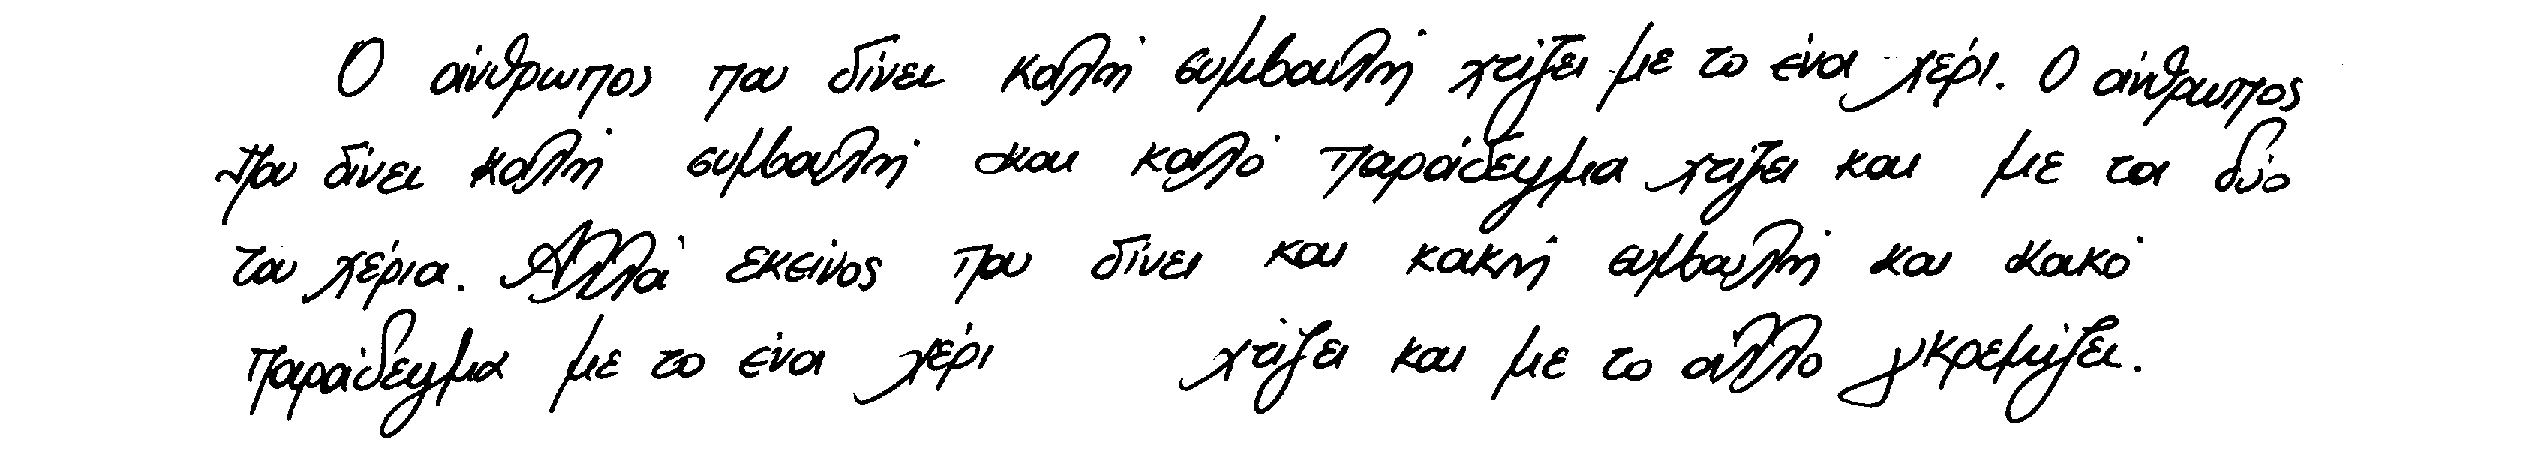 Ο άνθρωπος που δίνει καλή συμβουλή χτίζει με το ένα χέρι. Ο άνθρωπος
που δίνει καλή συμβουλή και καλό παράδειγμα χτίζει και με τα δύο
του χέρια. Αλλά εκείνος που δίνει και κακή συμβουλή και κακό
παράδειγμα με το ένα χέρι χτίζει και με το άλλο γκρεμίζει.